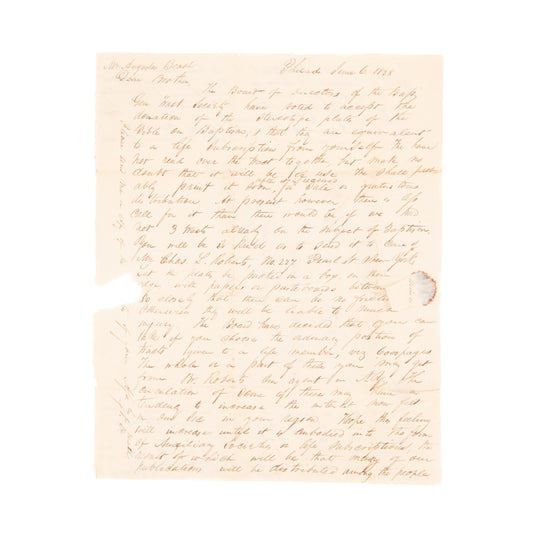 Mr Augustus Beard Philad. June 6. 1828
Dear Brother
The Board of directors of the Bap.
Gen Tract Society have voted to accept the
donation of the stereotype plates of the
Bible on Baptism, & that they are equivalent
to a life subscription from yourself. We have
not read over the tract together, but make no
doubt that it will be of use. We shall prob
after it is received
ably print it soon, for sale or gratuitous
distribution. At present however, there is less
call for it than there would be if we had
not 3 tracts already on the subject of baptism.
You will be so kind as to send it to care of
Mr Chas. L. Roberts, No. 227 Pearl St New York.
Let the plates be packed in a box, on their
edge with papers or pasteboards between
so closely that there can be no friction
otherwise they will be liable to much
injury. The Board have decided that you can
take if you choose the ordinary portion of
tracts given to a life member, viz pages
The whole or a part of these you may get
from Mr. Roberts our agent in N.Y. The
circulation of some of these may have a
tendency to increase the interest now felt
in our in your region. Hope this feeling
will increase until it is embodied into the form
of Auxiliary Societies or life subscriptions, the
result of which will be that many of our
publications will be distributed among the people